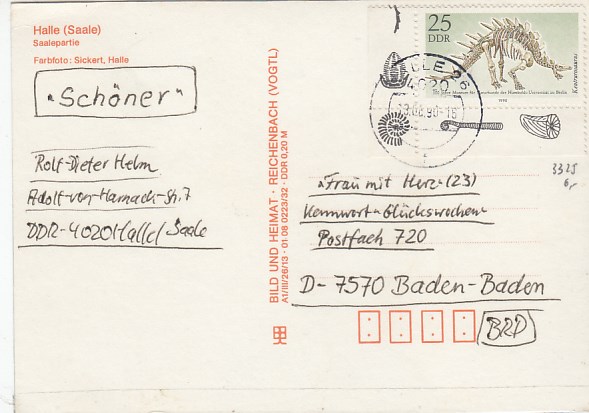 Halle (Saale)
Saalepartie
Farbfoto: Sickert, Halle
"Schöner"
Rolf-Dieter Helm
Adolf-von-Harnack-Str. 7
DDR-4020 Halle/ Saale
BILD UND HEIMAT · REICHENBACH (VOGTL)
A1/III/26/13 · 01 08 0223/32 · DDR 0,20 M
25
DDR
Kentrurosaurus
100 Jahre Museum für Naturkunde der Humboldt-Universität zu Berlin
1990
HALLE 26
4020
.90-16
3325
6,-
"Frau mit Herz" (23)
Kennwort "Glückswochen"
Postfach 720
D- 7570 Baden-Baden
BRD